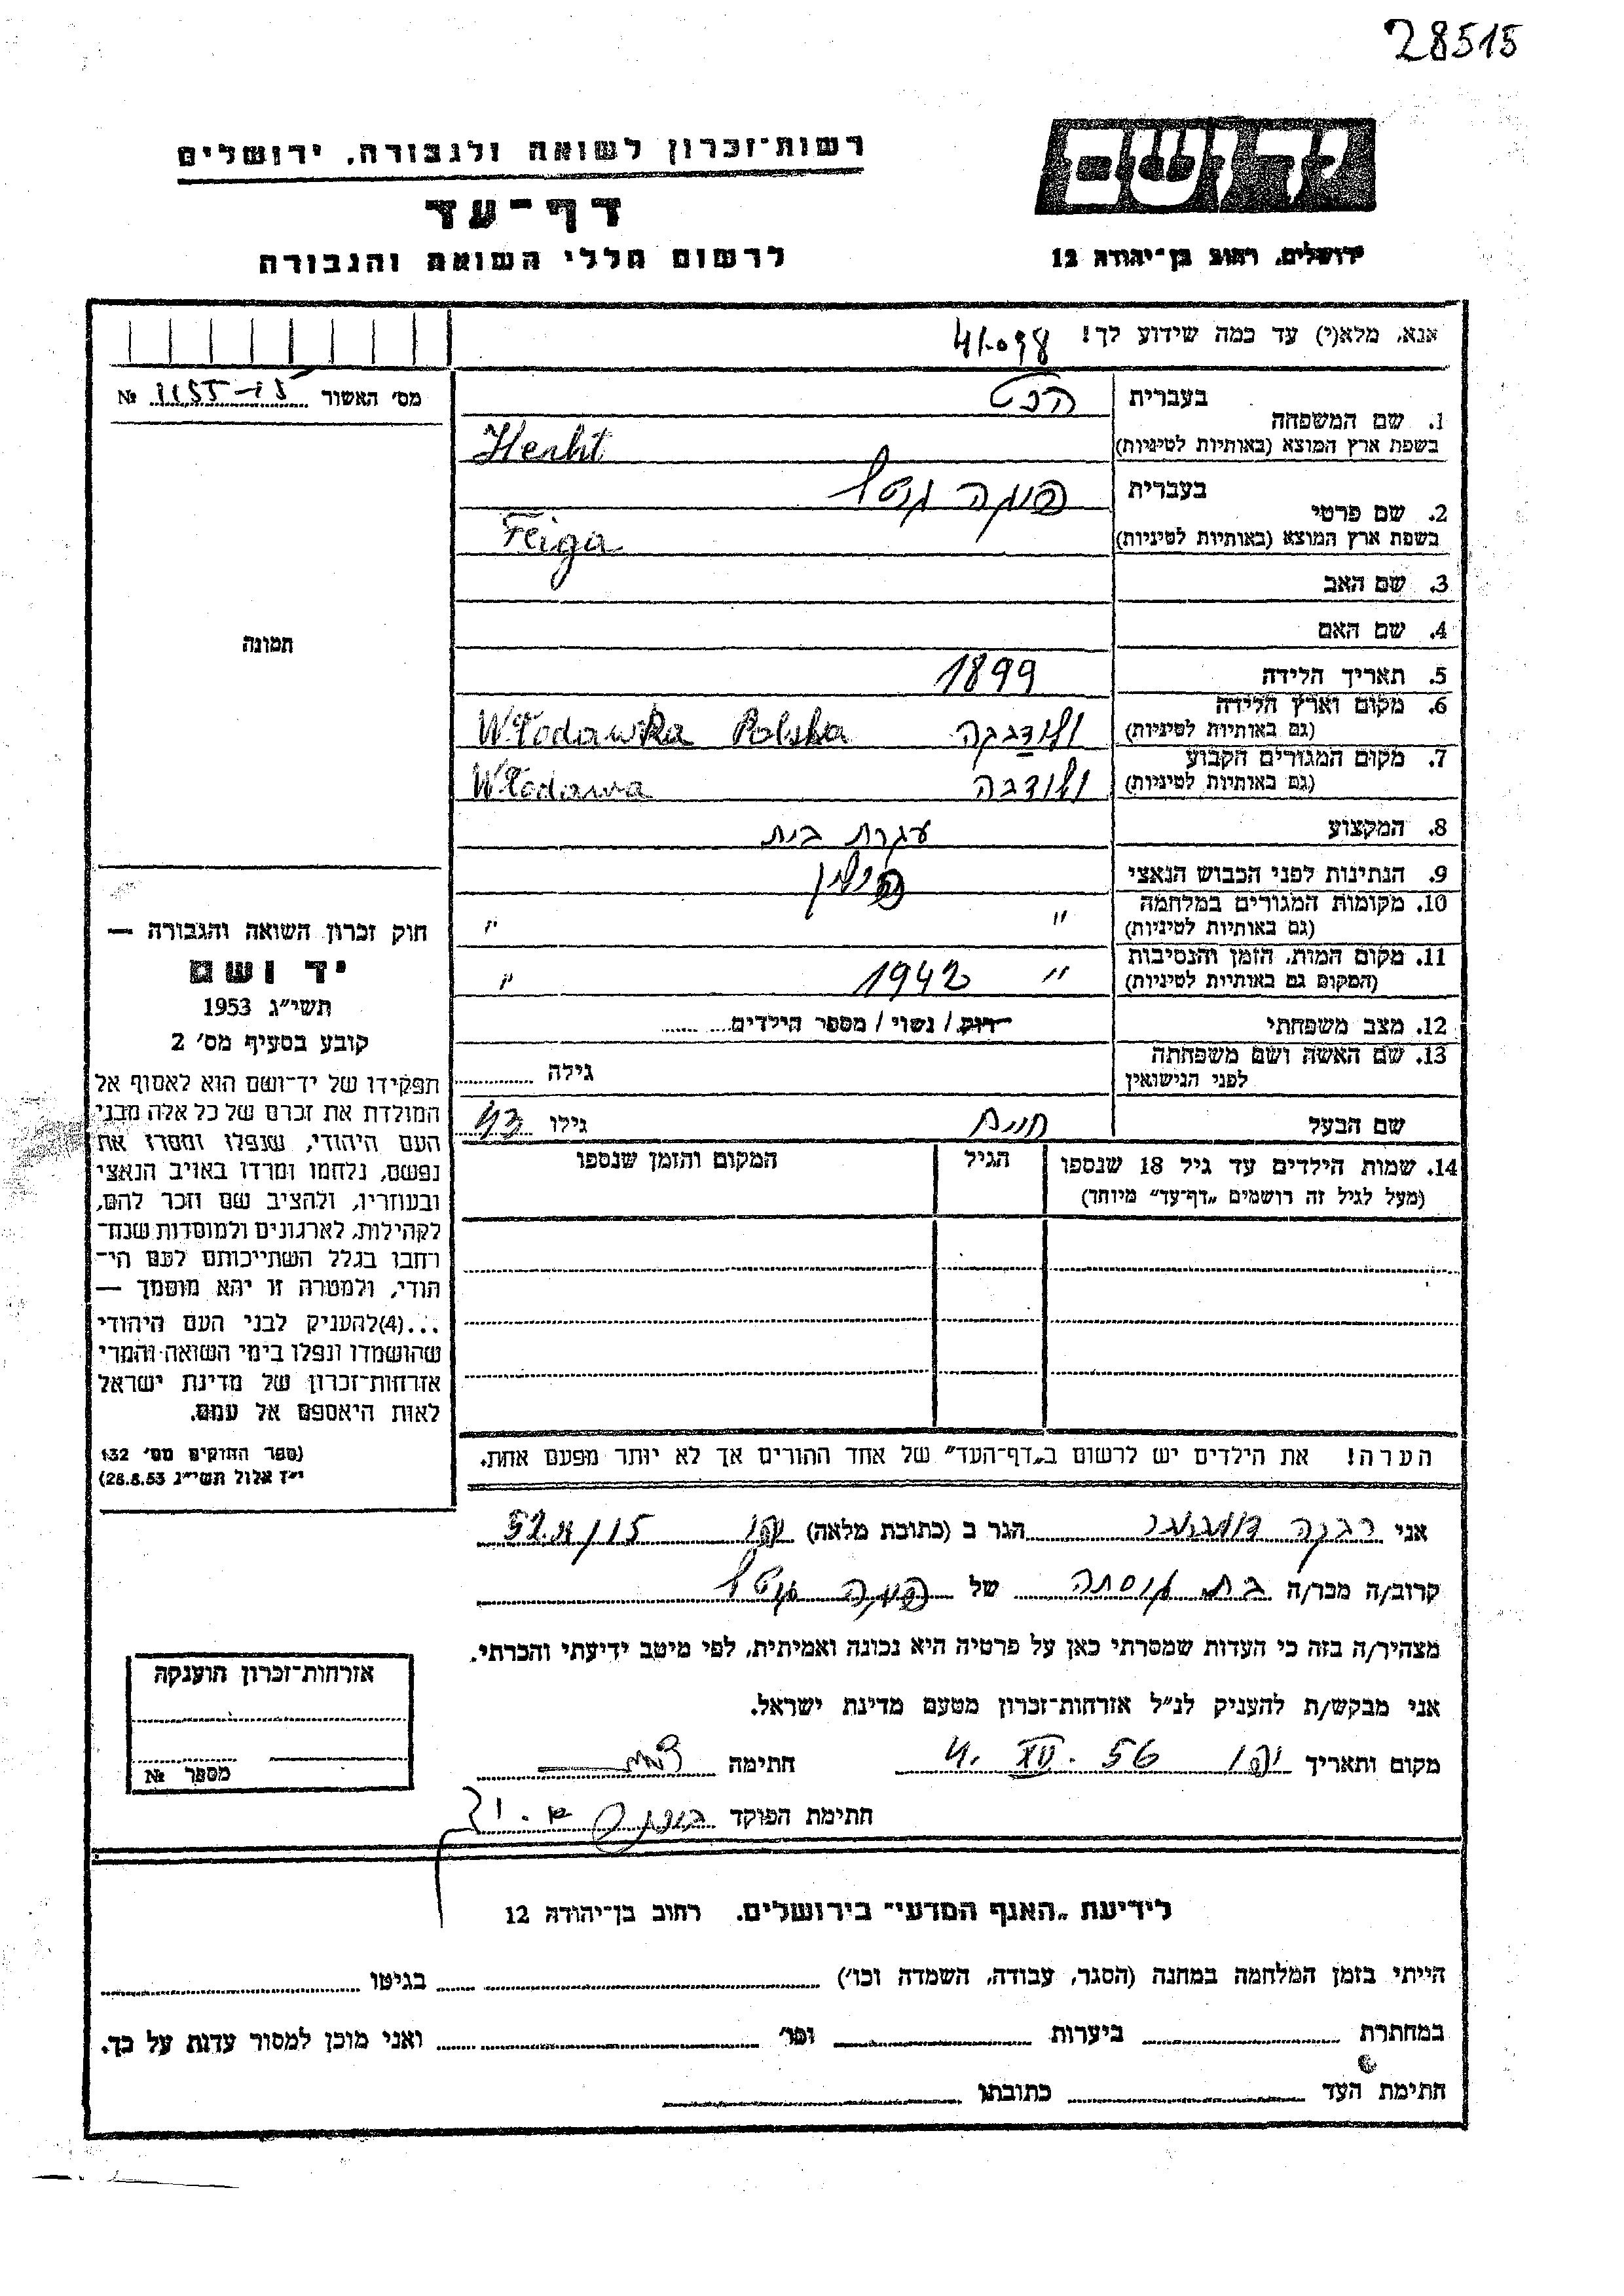 28515
יד ושם
רשות־זכרון לשואה ולגבורה, ירושלים
דף־עד
לרשום חללי השואה והגבורה
ירושלים, רחוב בן־יהודה 12
אנא, מלא(י) עד כמה שידוע לך!
מס' האשור №
בעברית הכט
1. שם המשפחה
בשפת ארץ המוצא (באותיות לטיניות) Hecht
בעברית פייגה
2. שם פרטי
בשפת ארץ המוצא (באותיות לטיניות) Feiga
3. שם האב
4. שם האם
תמונה
5. תאריך הלידה 1899
6. מקום וארץ הלידה
(גם באותיות לטיניות) ולודבקה Włodawka Polska
7. מקום המגורים הקבוע
(גם באותיות לטיניות) ולודבה Włodawa
8. המקצוע עקרת בית
9. הנתינות לפני הכבוש הנאצי פולין
10. מקומות המגורים במלחמה
(גם באותיות לטיניות) " "
11. מקום המות, הזמן והנסיבות
(המקום גם באותיות לטיניות) " 1942 "
12. מצב משפחתי רווק / נשוי / מספר הילדים
13. שם האשה ושם משפחתה
לפני הנישואין גילה
שם הבעל חיים גילו 43
14. שמות הילדים עד גיל 18 שנספו הגיל המקום והזמן שנספו
(מעל לגיל זה רושמים „דף־עד" מיוחד)
חוק זכרון השואה והגבורה —
יד ושם
תשי"ג 1953
קובע בסעיף מס' 2
תפקידו של יד־ושם הוא לאסוף אל
המולדת את זכרם של כל אלה מבני
העם היהודי, שנפלו ומסרו את
נפשם, נלחמו ומרדו באויב הנאצי
ובעוזריו, ולהציב שם וזכר להם,
לקהילות, לארגונים ולמוסדות שנח־
רבו בגלל השתייכותם לעם הי־
הודי, ולמטרה זו יהא מוסמך —
...(4)להעניק לבני העם היהודי
שהושמדו ונפלו בימי השואה והמרי
אזרחות־זכרון של מדינת ישראל
לאות היאספם אל עמם.
(ספר החוקים מס' 132
י"ז אלול תשי"ג 28.8.53)
הערה! את הילדים יש לרשום ב„דף־העד" של אחד ההורים אך לא יותר מפעם אחת.
אני רבקה הגר ב (כתובת מלאה) יפו
קרוב/ה מכר/ה של פייגה
מצהיר/ה בזה כי העדות שמסרתי כאן על פרטיה היא נכונה ואמיתית, לפי מיטב ידיעתי והכרתי.
אני מבקש/ת להעניק לנ"ל אזרחות־זכרון מטעם מדינת ישראל.
מקום ותאריך יפו 4. XII. 56 חתימה
חתימת הפוקד
אזרחות־זכרון הוענקה
מספר №
לידיעת „האגף המדעי" בירושלים, רחוב בן־יהודה 12
הייתי בזמן המלחמה במחנה (הסגר, עבודה, השמדה וכו') בגיטו
במחתרת ביערות וכו' ואני מוכן למסור עדות על כך.
חתימת העד כתובתו